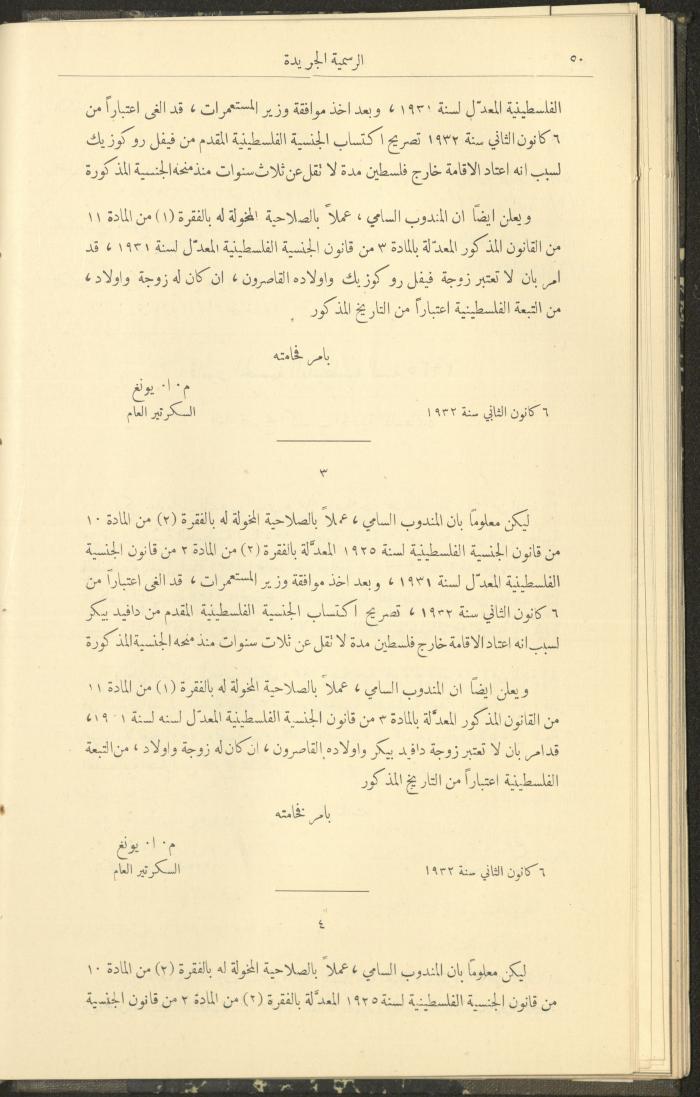 ٥٠
الرسمية الجريدة
الفلسطينية المعدّل لسنة ١٩٣١ ، وبعد اخذ موافقة وزير المستعمرات ، قد الغى اعتباراً من
٦ كانون الثاني سنة ١٩٣٢ تصريح اكتساب الجنسية الفلسطينية المقدم من فيفل روكوزيك
لسبب انه اعتاد الاقامة خارج فلسطين مدة لا تقل عن ثلاث سنوات منذ منحه الجنسية المذكورة
ويعلن ايضاً ان المندوب السامي ، عملاً بالصلاحية المخولة له بالفقرة (١) من المادة ١١
من القانون المذكور المعدّلة بالمادة ٣ من قانون الجنسية الفلسطينية المعدّل لسنة ١٩٣١ ، قد
امر بان لا تعتبر زوجة فيفل روكوزيك واولاده القاصرون ، ان كان له زوجة واولاد ،
من التبعة الفلسطينية اعتباراً من التاريخ المذكور
بامر فخامته
م٠ا٠ يونغ
٦ كانون الثاني سنة ١٩٣٢ السكرتير العام
٣
ليكن معلوماً بان المندوب السامي ، عملاً بالصلاحية المخولة له بالفقرة (٢) من المادة ١٠
من قانون الجنسية الفلسطينية لسنة ١٩٢٥ المعدَّلة بالفقرة (٢) من المادة ٢ من قانون الجنسية
الفلسطينية المعدّل لسنة ١٩٣١ ، وبعد اخذ موافقة وزير المستعمرات ، قد الغى اعتباراً من
٦ كانون الثاني سنة ١٩٣٢ ، تصريح اكتساب الجنسية الفلسطينية المقدم من دافيد بيكر
لسبب انه اعتاد الاقامة خارج فلسطين مدة لا تقل عن ثلاث سنوات منذ منحه الجنسية المذكورة
ويعلن ايضاً ان المندوب السامي ، عملاً بالصلاحية المخولة له بالفقرة (١) من المادة ١١
من القانون المذكور المعدَّلة بالمادة ٣ من قانون الجنسية الفلسطينية المعدّل لسنه لسنة ١٩٣١ ،
قد امر بان لا تعتبر زوجة دافيد بيكر واولاده القاصرون ، ان كان له زوجة واولاد ، من التبعة
الفلسطينية اعتباراً من التاريخ المذكور
بامر فخامته
م٠ا٠ يونغ
٦ كانون الثاني سنة ١٩٣٢ السكرتير العام
٤
ليكن معلوماً بان المندوب السامي ، عملاً بالصلاحية المخولة له بالفقرة (٢) من المادة ١٠
من قانون الجنسية الفلسطينية لسنة ١٩٢٥ المعدَّلة بالفقرة (٢) من المادة ٢ من قانون الجنسية